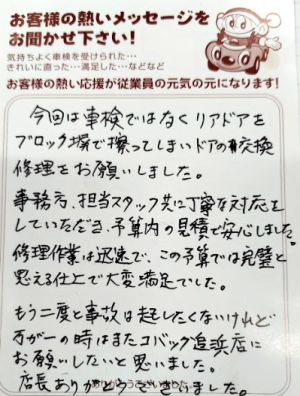 お客様の熱いメッセージを
お聞かせ下さい!
気持ちよく車検を受けられた…
きれいに直った…満足した…などなど
お客様の熱い応援が従業員の元気の元になります!
今回は車検ではなくリアドアを
ブロック塀で擦ってしまいドアの交換
修理をお願いしました。
事務方、担当スタッフ共に丁寧な対応を
していただき、予算内の見積で安心しました。
修理作業は迅速で、この予算では完璧と
思える仕上で大変満足でした。
もう二度と事故は起したくないけれど
万が一の時はまたコバック追浜店に
お願いしたいと思いました。
店長ありがとうございました。